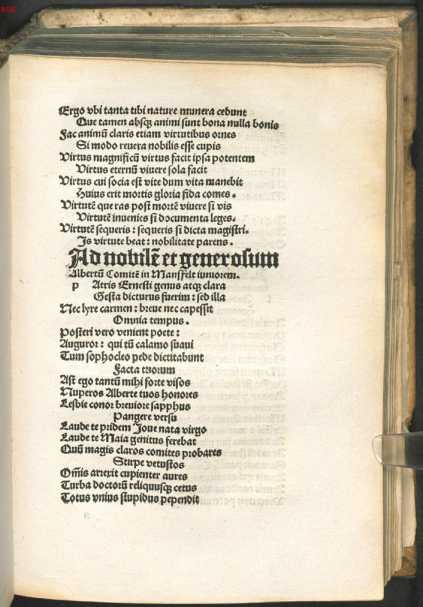 Ergo vbi tanta tibi nature munera cedunt
Que tamen absqꝫ animi sunt bona nulla bonis
Fac animū claris etiam virtutibus ornes
Si modo reuera nobilis esse cupis
Virtus magnificū virtus facit ipsa potentem
Virtus eternū viuere sola facit
Virtus cui socia est vite dum vita manebit
Huius erit mortis gloria fida comes.
Virtutē que ras post mortē viuere si vis
Virtutē inuenies si documenta leges.
Virtutē sequeris: sequeris si dicta magistri.
Is virtute beat: nobilitate parens.
Ad nobilē et generosum
Albertū Comitē in Mansfelt iuniorem.
p Atris Ernesti genus atqꝫ clara
Gesta dicturus fuerim: sed illa
Nec lyre carmen: breue nec capessit
Omnia tempus.
Posteri vero venient poete:
Auguror: qui tū calamo suaui
Tum sophocleo pede dictitabunt
Facta tuorum
Ast ego tantū mihi forte visos
Nuperos Alberte tuos honores
Lesbie conor breuiore sapphus
Pangere versu
Laude te pridem Joue nata virgo
Laude te Maia genitus ferebat
Quū magis claros comites probares
Stirpe vetustos
Om̄is arrexit cupienter aures
Turba doctorū reliquusqꝫ cetus
Totus vnius stupidus pependit